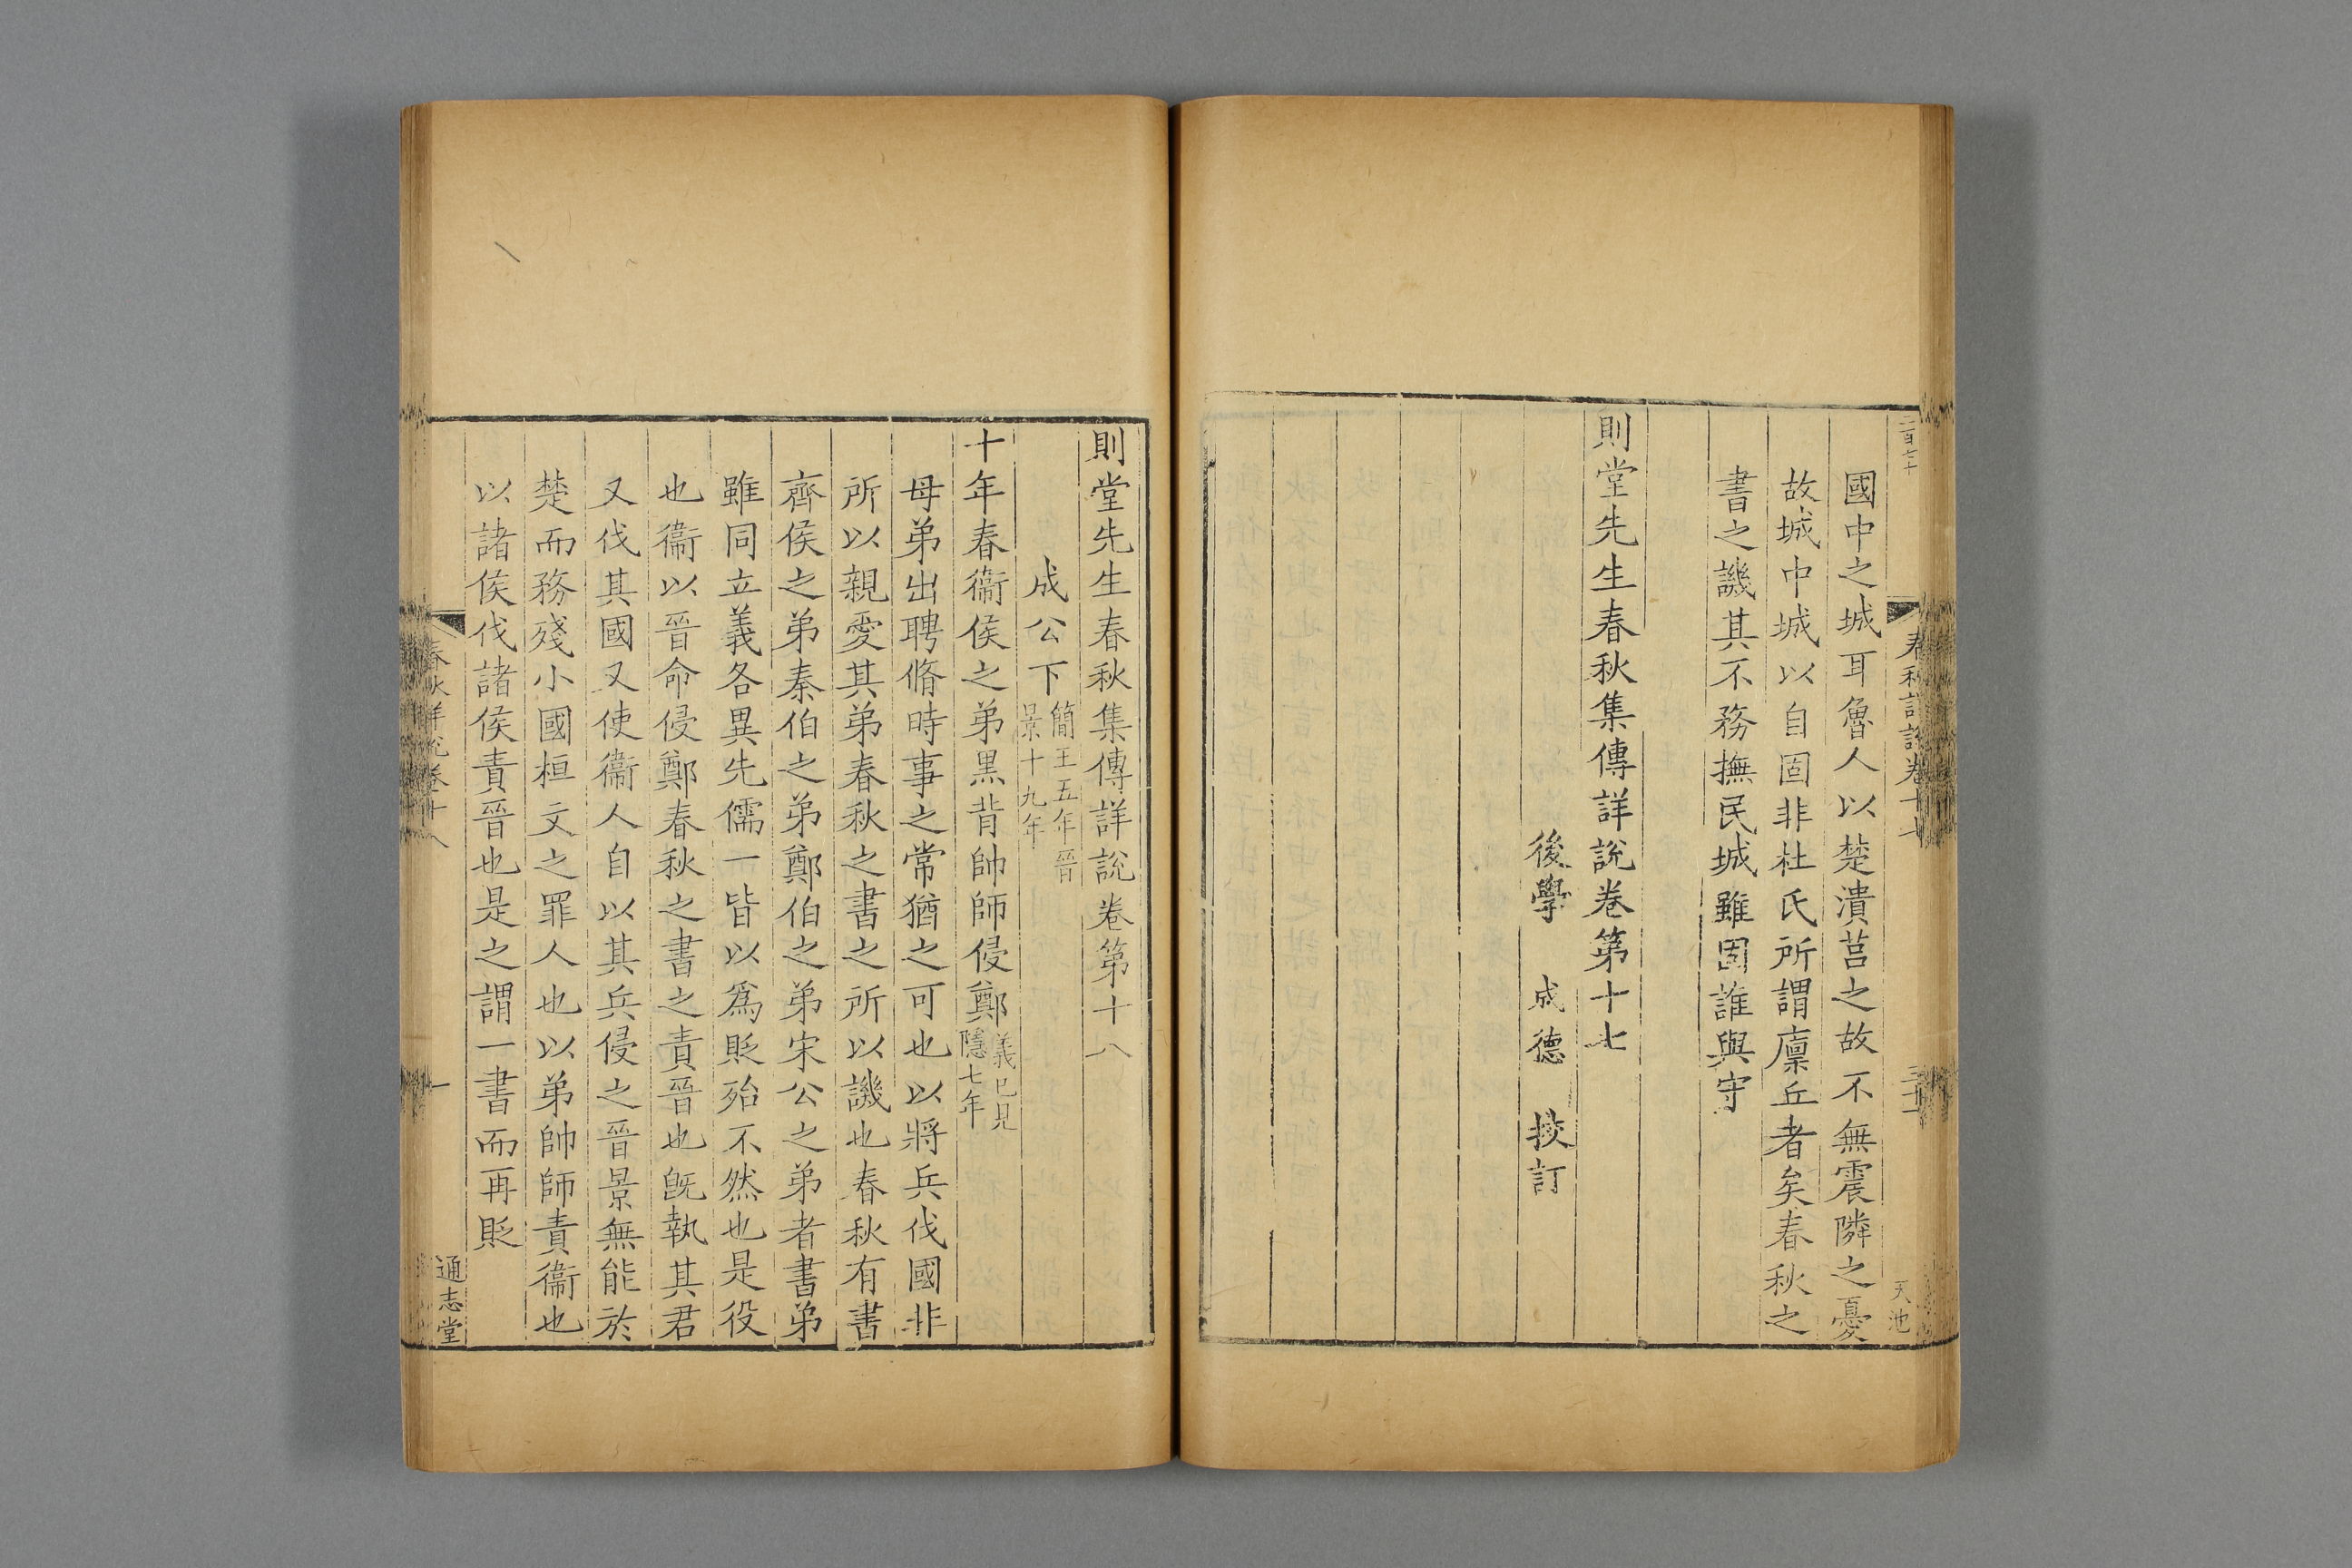 二百七十
春秋詳說卷十七
天池
國中之城耳魯人以楚潰莒之故不無震隣之憂
故城中城以自固非杜氏所謂廩丘者矣春秋之
書之譏其不務撫民城雖固誰與守
則堂先生春秋集傳詳說卷第十七
後學 成德 挍訂
則堂先生春秋集傳詳說卷第十八
成公下簡王五年晉
景十九年
十年春衞侯之弟黑背帥師侵鄭義已見
隱七年
母弟出聘脩時事之常猶之可也以將兵伐國非
所以親愛其弟春秋之書之所以譏也春秋有書
齊侯之弟秦伯之弟鄭伯之弟宋公之弟者書弟
雖同立義各異先儒一皆以爲貶殆不然也是役
也衞以晉命侵鄭春秋之書之責晉也旣執其君
又伐其國又使衞人自以其兵侵之晉景無能於
楚而務殘小國桓文之罪人也以弟帥師責衞也
以諸侯伐諸侯責晉也是之謂一書而再貶
春秋詳說卷十八
一
通志堂